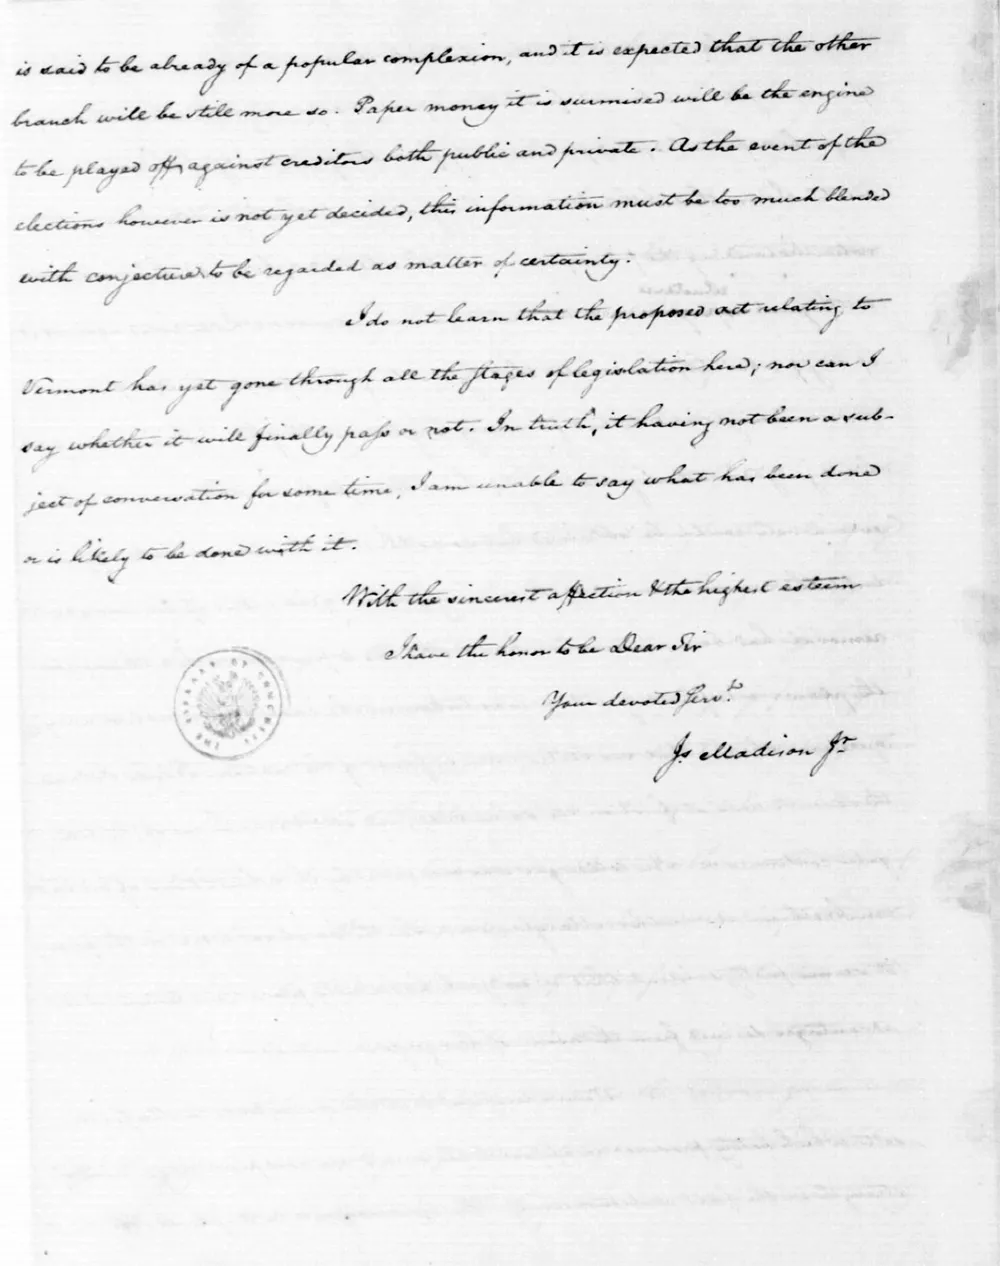 is said to be already of a popular complexion, and it is expected that the other
branch will be still more so. Paper money it is surmised will be the engine
to be played off against creditors both public and private. As the event of the
elections however is not yet decided, this information must be too much blended
with conjecture to be regarded as matter of certainty.
I do not learn that the proposed act relating to
Vermont has yet gone through all the stages of legislation here; nor can I
say whether it will finally pass or not. In truth, it having not been a sub-
ject of conversation for some time, I am unable to say what has been done
or is likely to be done with it.
With the sincerest affection & the highest esteem
I have the honor to be Dear Sir
Your devoted Servt.
Js. Madison Jr
THE LIBRARY OF CONGRESS